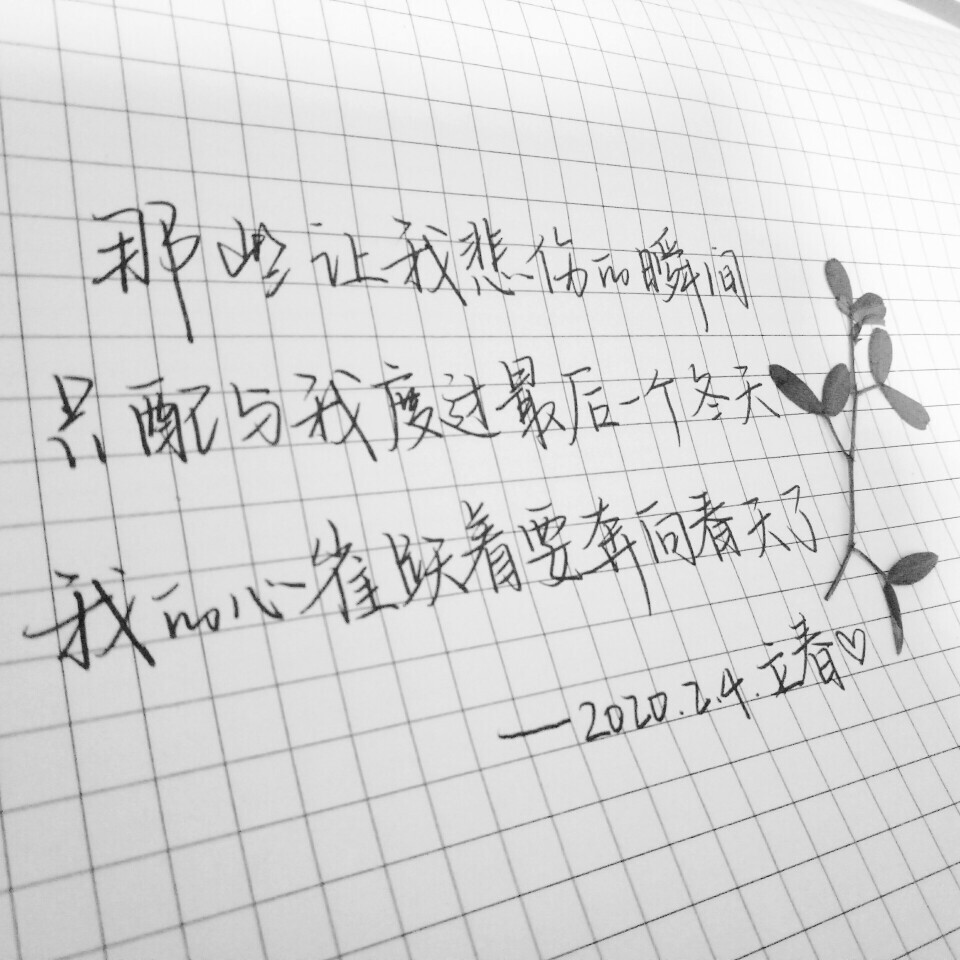 那些让我悲伤的瞬间
只配与我度过最后一个冬天
我的心雀跃着要奔向春天了
—2020.2.4.立春♡